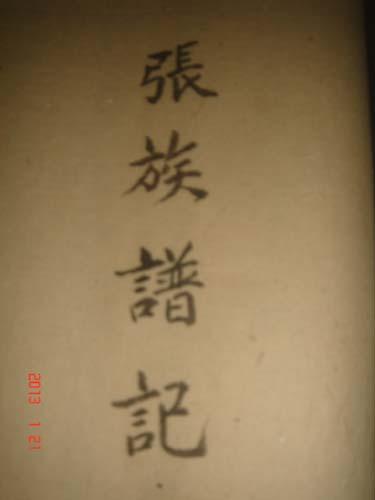 張族譜記
2013 1 21